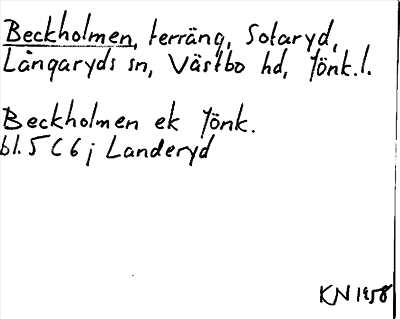 Beckholmen, terräng, Sotaryd,
Långaryds sn, Västbo hd, Jönk.l.
Beckholmen ek Jönk.
bl. 5 C 6 j Landeryd
KN 1958